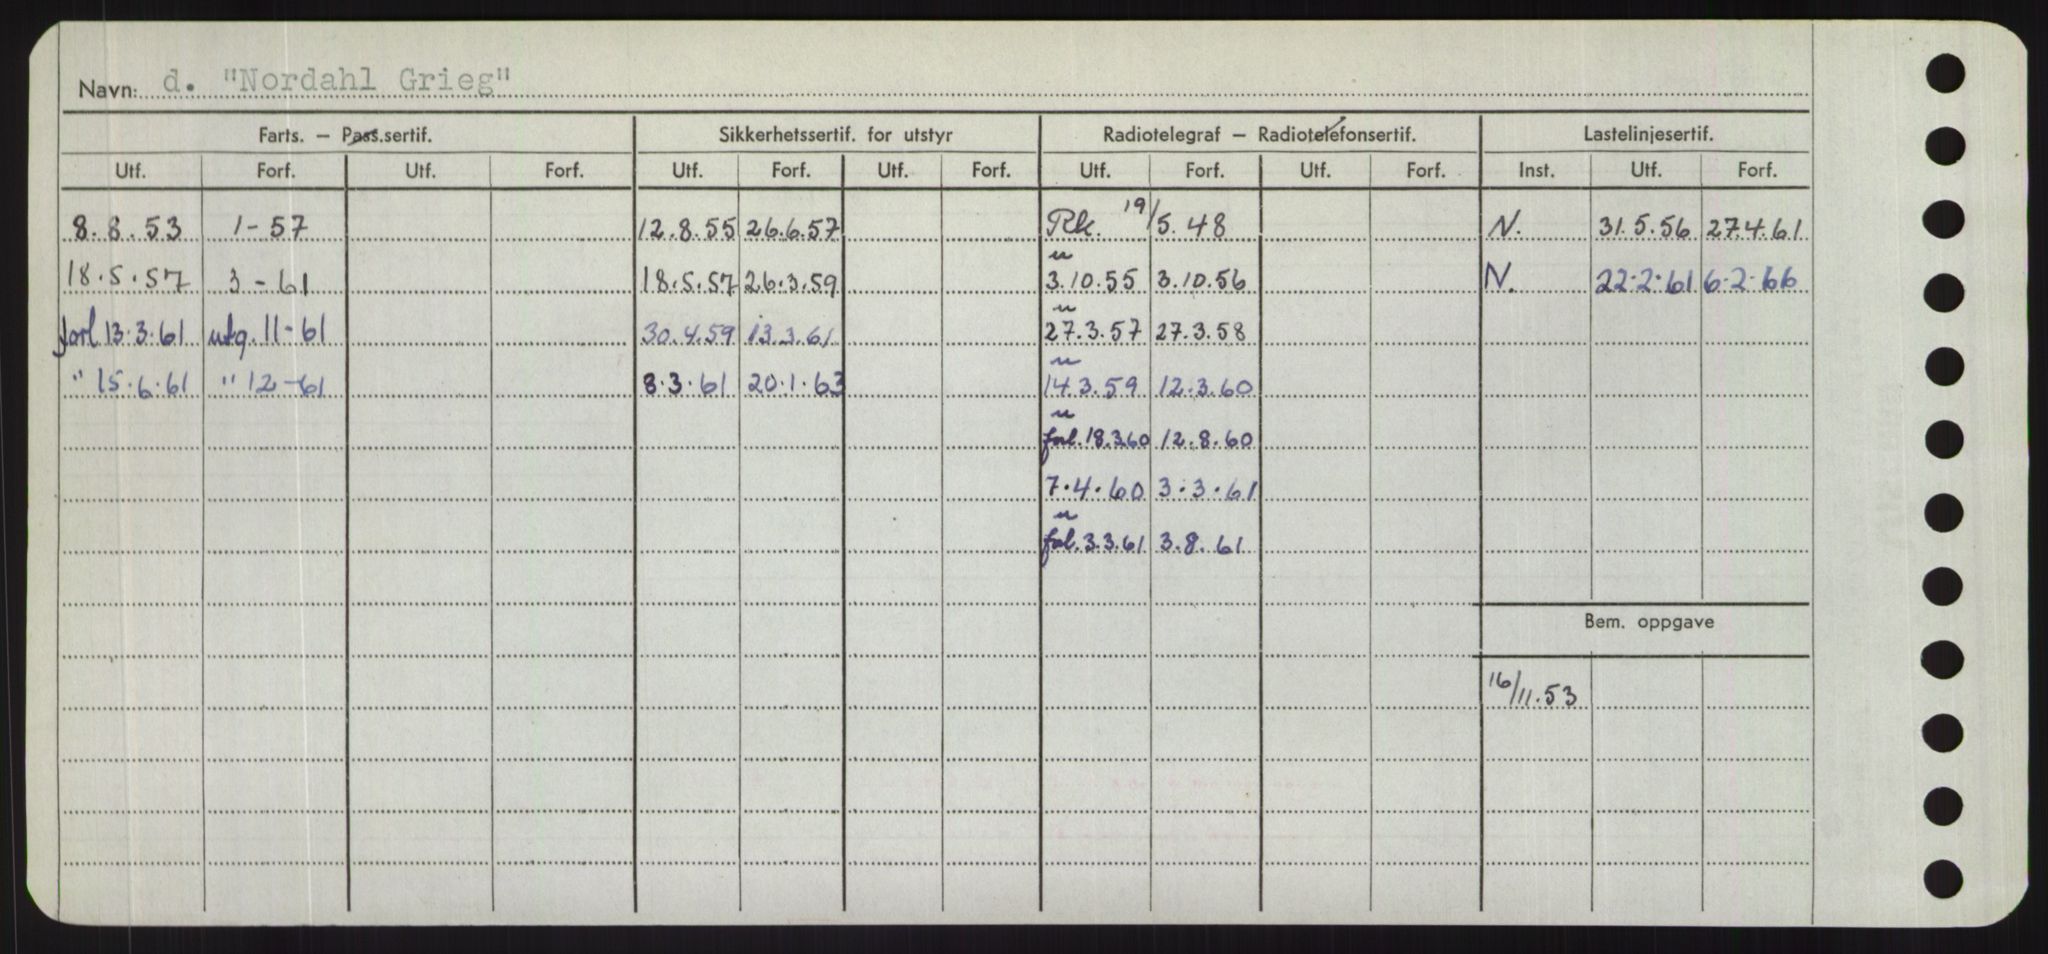 Navn: d. "Nordahl Grieg"
Farts. – Pass.sertif. Sikkerhetssertif. for utstyr Radiotelegraf – Radiotelefonsertif. Lastelinjesertif.
Utf. Forf. Utf. Forf. Utf. Forf. Utf. Forf. Utf. Forf. Utf. Forf. Inst. Utf. Forf.
8.8.53 1-57 12.8.55 26.6.57 Rk. 19/5.48 N. 31.5.56 27.4.61
18.5.57 3-61 18.5.57 26.3.59 u 3.10.55 3.10.56 N. 22.2.61 6.2.66
forl 13.3.61 utg. 11-61 30.4.59 13.3.61 u 27.3.57 27.3.58
" 15.6.61 " 12-61 8.3.61 20.1.63 u 14.3.59 12.3.60
u forl. 18.3.60 12.8.60
7.4.60 3.3.61
u fol. 3.3.61 3.8.61
Bem. oppgave
16/11.53